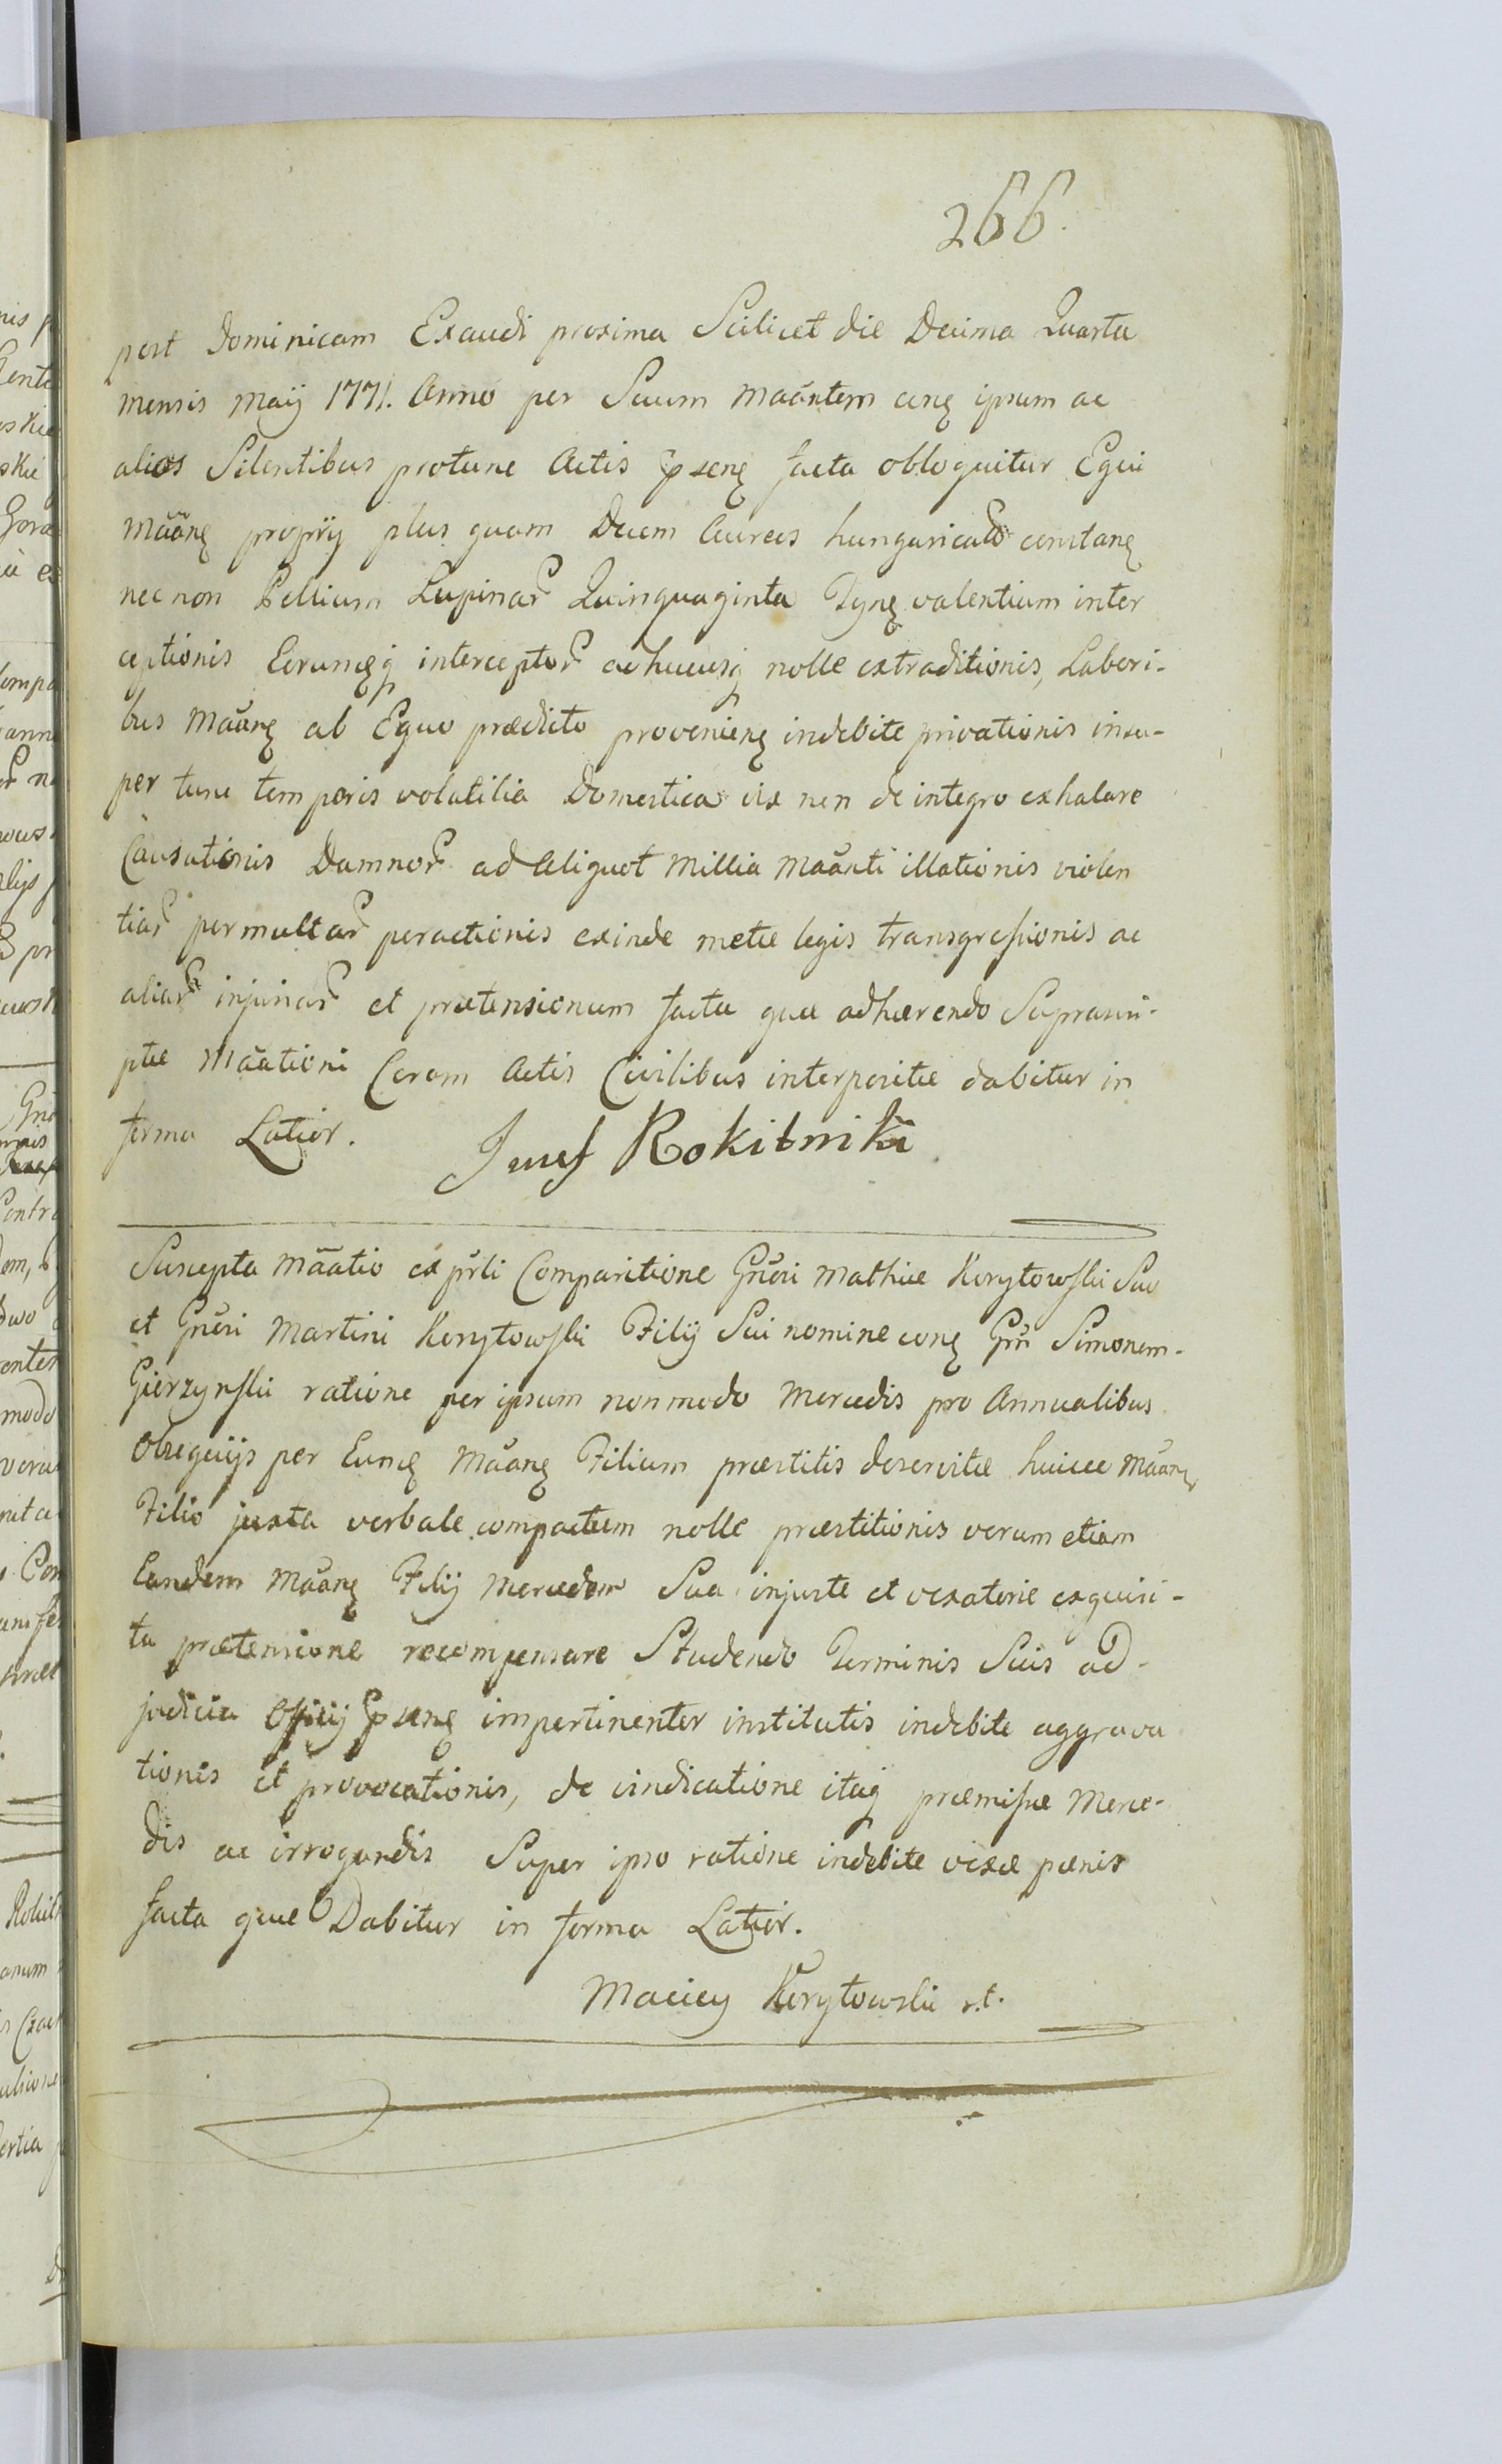 266.
post Dominicam Exaudi proxima Scilicet die Decima Quarta
mensis Maij 1771. Anno per Suum Mãantem cong ipsum ac
alios Silentibus protunc Actis pseng facta obloquitur Equi
Mãang proprij plus quam Decem Aureos hungaricales constang
nec non Pellium Lupinar Quinquaginta Tyng valentium inter
ceptionis Eorumq interceptor adhucusq nolle extraditionis, Labori-
bus Mãang ab Equo prædicto provenieng indebite privationis insu-
per tunc temporis volatilia Domestica vix non de integro exhalare
Causationis Damnor ad Aliquot Millia Mãanti illationis violen
tiar permultar peractionis exinde metæ legis transgressionis ac
aliar injuriar et prætensionum facta quæ adhærendo Suprascri-
ptæ Mãationi Coram Actis Civilibus interpositæ dabitur in
forma Latior. Jusef Rokitnitki
Suscepta Mãatio ex pñli Comparitione Gñeri Mathiæ Korytowski Suo
et Gñeri Martini Korytowski Filij Sui nomine cong Gñr Simonem-
Gierzynski ratione per ipsum non modo Mercedis pro Annualibus
Obsequijs per Eumq Mãang Filium præstitis deservitæ huicce Mãang
Filio juxta verbale compactum nolle præstitionis verum etiam
Eandem Mãang Filij Mercedem Sua injuste et vexatorie exquisi-
ta prætensione recompensare Studendo Terminis Suis ad-
judicia Officij pseng impertinenter institutis indebite aggrava
tionis et provocationis, de vindicatione itaq præmissæ Merce-
dis ac irrogandis Super ipso ratione indebite vexæ pænis
facta quæ Dabitur in forma Latior.
Maciey Korytowski r.t.